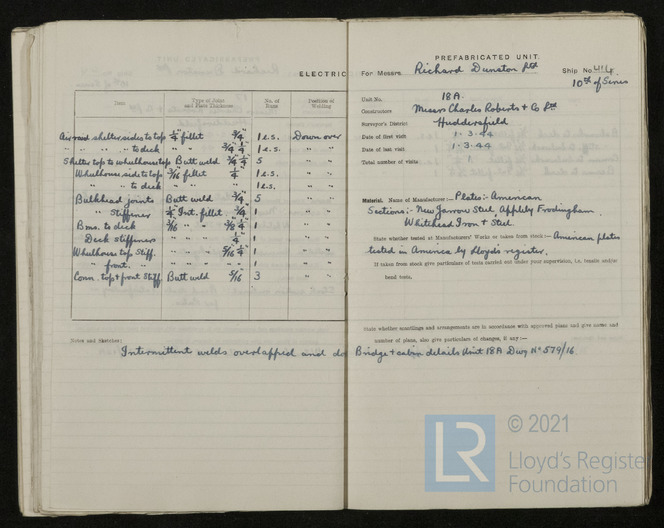 ELECTRIC
Item
Type of Joint and Plate Thickness
No. of Runs
Position of Welding
Air raid shelter sides to top 1/4" fillet 3/4" 1 e.s. Down over
" " " to deck " 3/4" 1/4" 1 e.s. " "
Shelter top to wheelhouse top Butt weld 3/4" 1/4" 5 " "
Wheelhouse side to top 3/16" fillet 1/4" 1 e.s. " "
" " to deck " " 1 e.s. " "
Bulkhead joints Butt weld 3/4" 5 " "
" Stiffener 1/4" Int. fillet 3/4" 1 " "
Bms. to deck 3/16" " " 1 " "
Deck stiffeners " " 1/4" 1 " "
Wheelhouse top Stiff. " " 5/16" 1/4" 1 " "
" front. " " " 1 " "
Conn. top & front Stiff Butt weld 5/16 3 " "
Notes and Sketches:
Intermittent welds overlapped and do
PREFABRICATED UNIT.
For Messrs Richard Dunston Ltd Ship No. 414
10th of Series
Unit No. 18A.
Constructors Messrs Charles Roberts & Co Ltd
Surveyor's District Huddersfield
Date of first visit 1.3.44
Date of last visit 1.3.44
Total number of visits 1
Material. Name of Manufacturer:- Plates:- American
Sections:- New Jarrow Steel, Appleby Frodingham.
Whitehead Iron & Steel.
State whether tested at Manufacturers' Works or taken from stock:- American plates
tested in America by Lloyd's register.
If taken from stock give particulars of tests carried out under your supervision, i.e. tensile and/or
bend tests.
State whether scantlings and arrangements are in accordance with approved plans and give names and
number of plans, also give particulars of changes, if any:-
Bridge & cabin details Unit 18A Dwg No 579/16.
© 2021
LR
Lloyd's Registe
Foundation